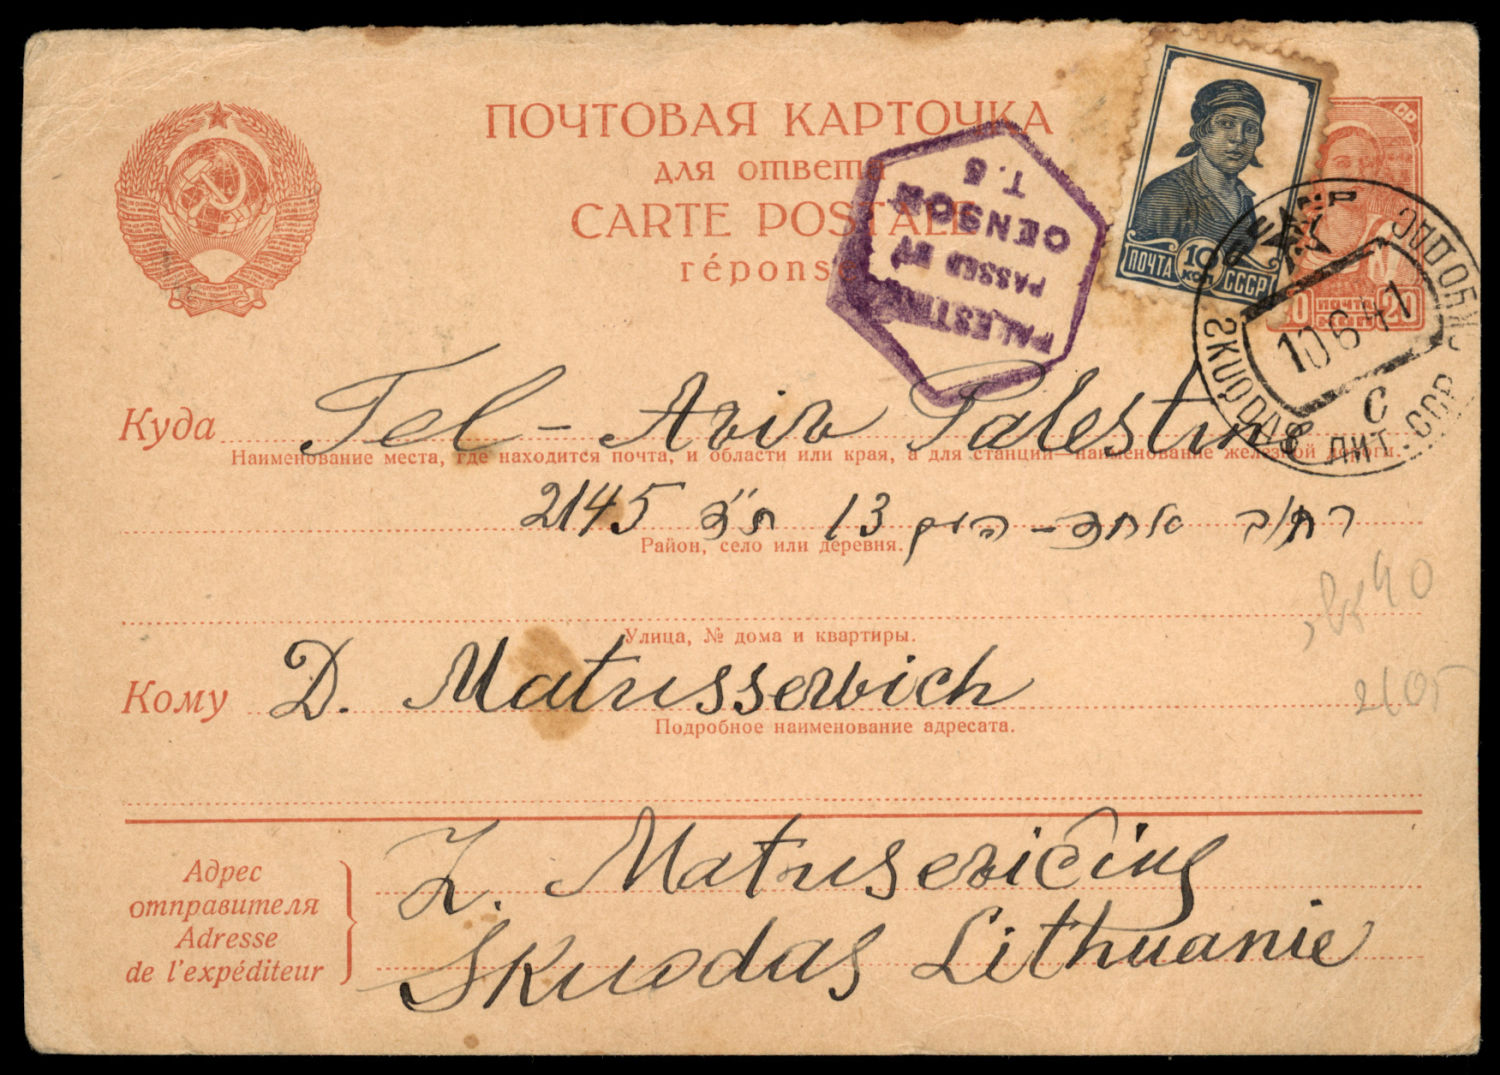 ПОЧТОВАЯ КАРТОЧКА
для ответа
CARTE POSTALE
réponse
PALESTINE
PASSED BY
CENSOR
T. 5
ПОЧТА 10 КОП СССР
20 ПОЧТА СССР 20
10 6 41
SKUODAS
С
ЛИТ. ССР
Куда Tel-Aviv Palestin
Наименование места, где находится почта, и области или края, а для станции—наименование железной дороги.
רחוב אחד 13 ת״ד 2145
Район, село или деревня.
Улица, № дома и квартиры.
40
Кому D. Matussewich
2105
Подробное наименование адресата.
Адрес
отправителя
Adresse
de l'expéditeur
Z. Matusevičius
Skuodas Lithuanie